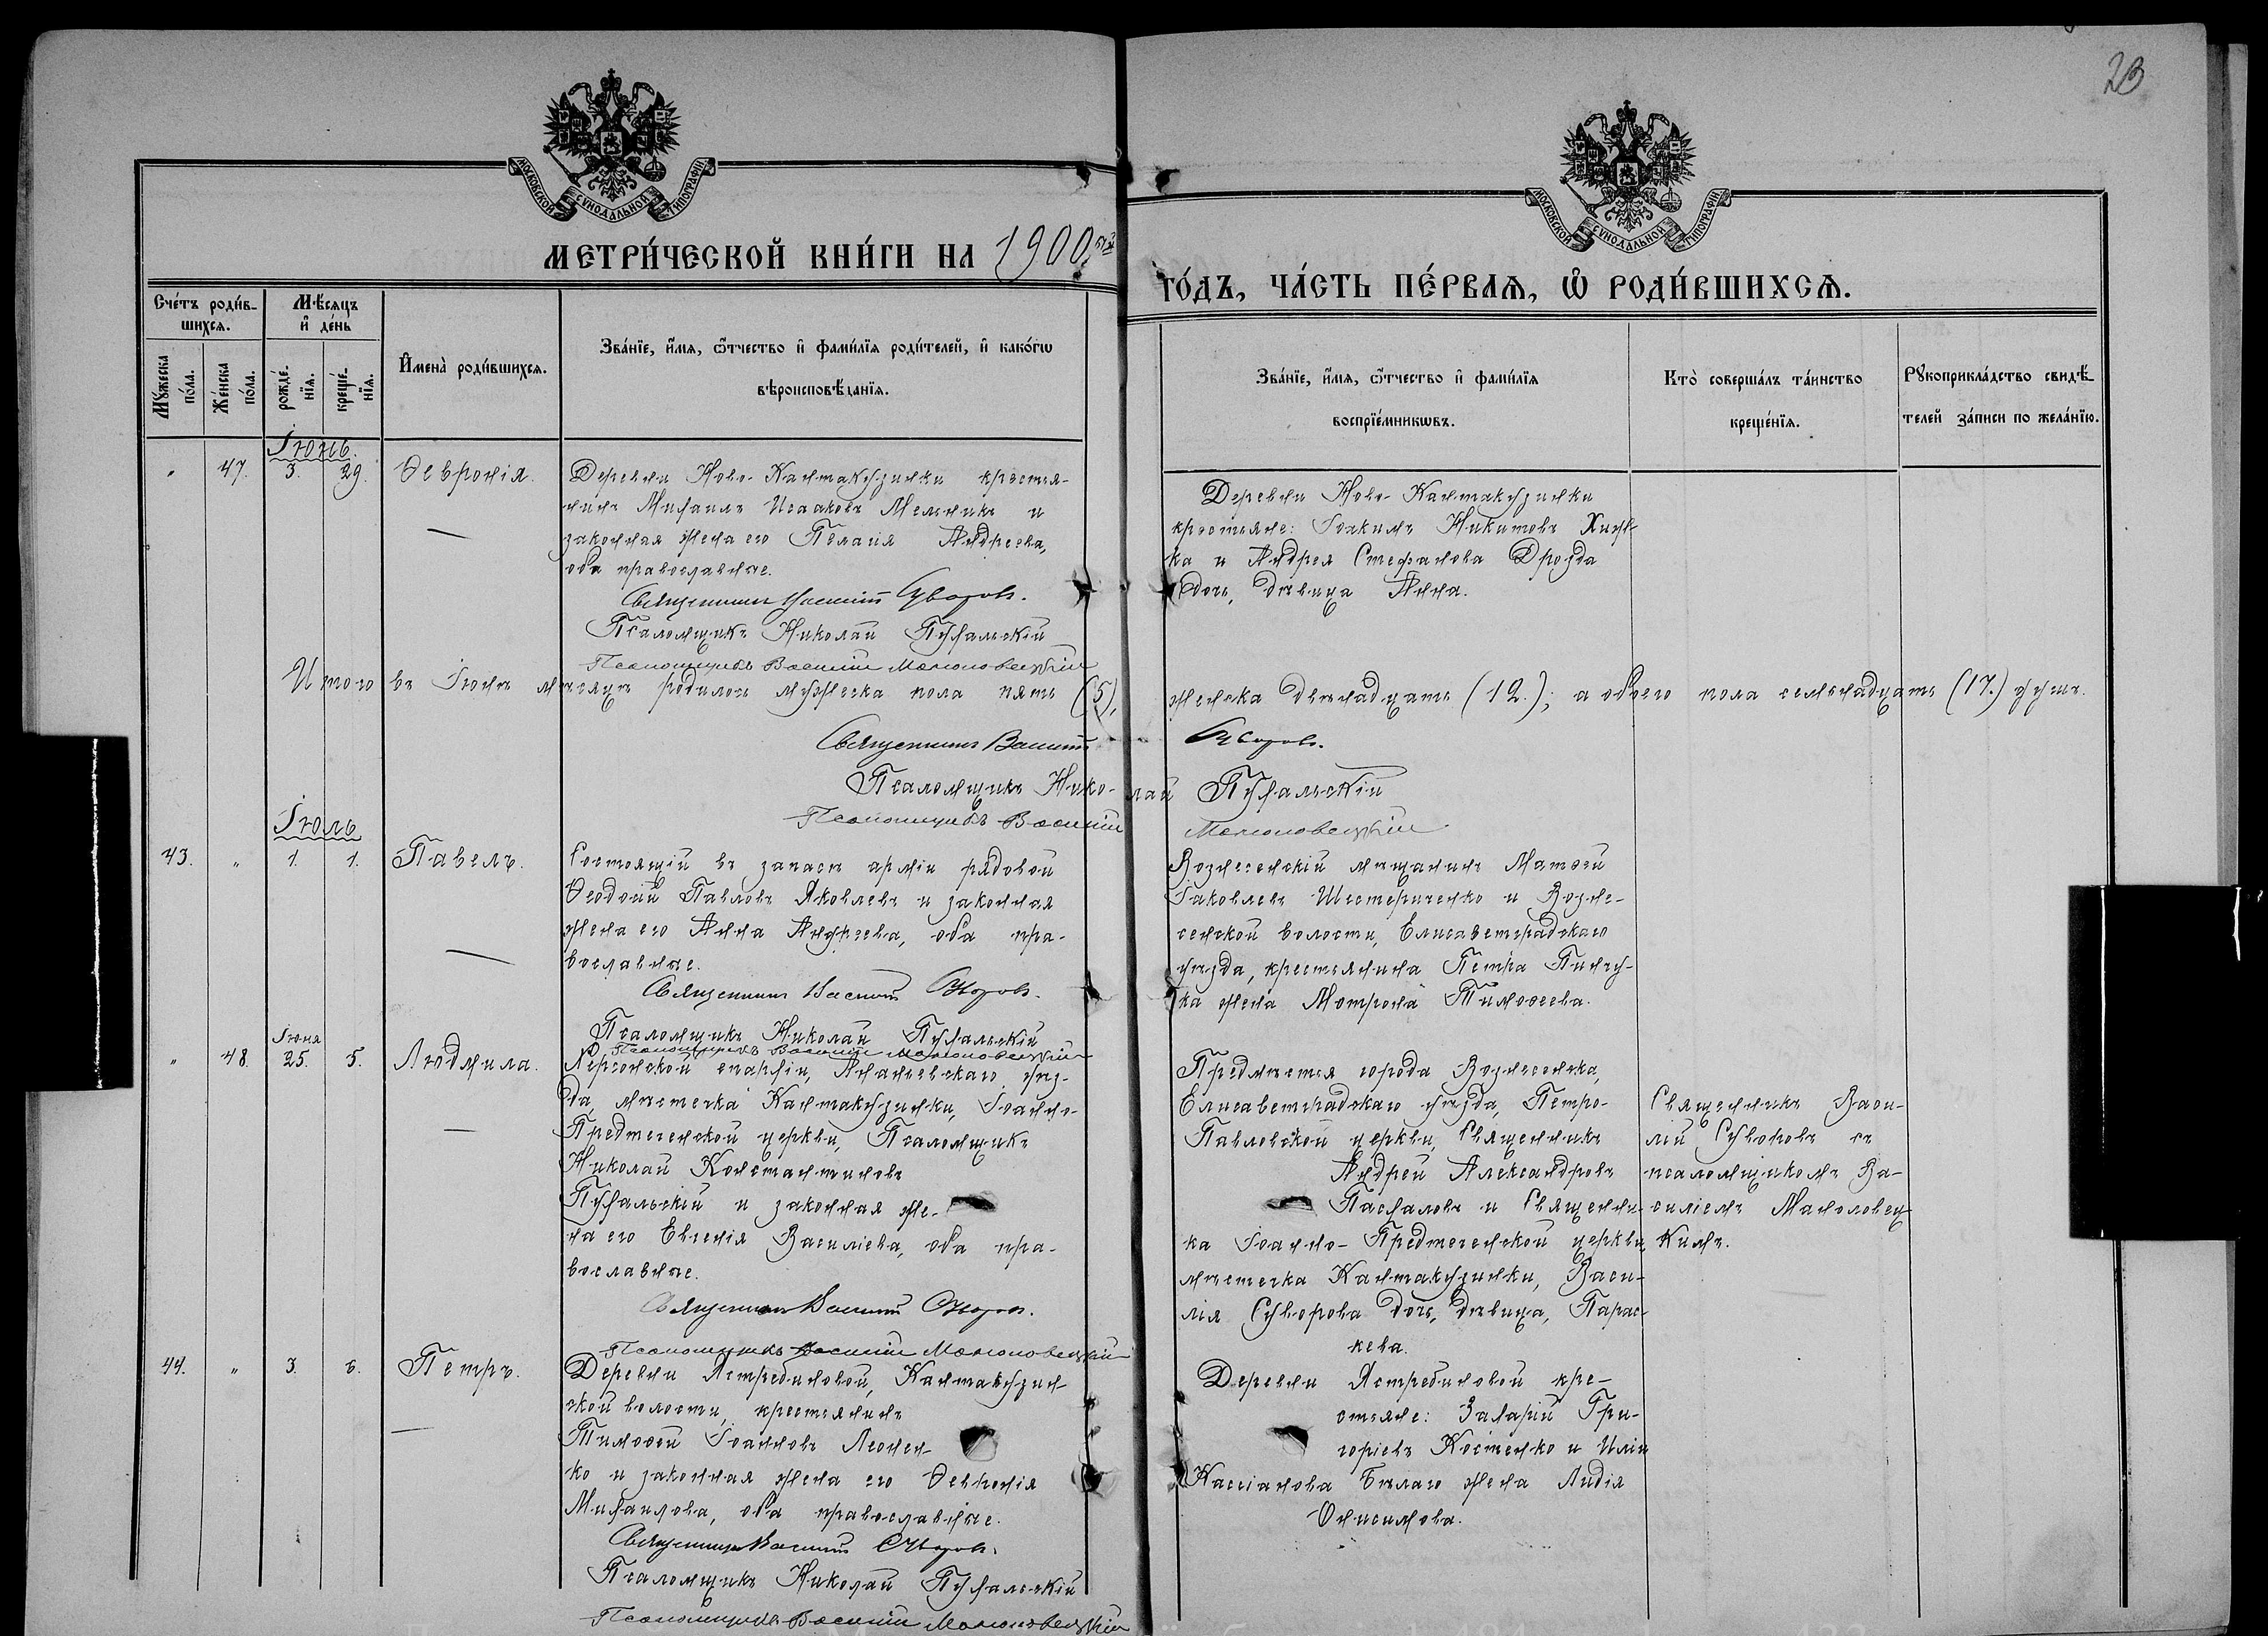 23
МОСКОВСКОЙ СУНОДАЛЬНОЙ ТИПОГРАФІИ
МОСКОВСКОЙ СУНОДАЛЬНОЙ ТИПОГРАФІИ
МЕТРИ́ЧЕСКОЙ КНИ́ГИ НА 1900ый
ГО́ДЪ, ЧА́СТЬ ПЕ́РВАѦ, Ѡ҆ РОДИ́ВШИХСѦ.
Сче́тъ роди́в-
шихсѧ.
Мѣ́сѧцъ
и҆ де́нь
Мꙋ́жеска
по́ла.
Же́нска
по́ла.
рожде́-
нїѧ.
креще́-
нїѧ.
И҆мена̀ роди́вшихсѧ.
Зва́нїе, и҆́мѧ, ѻ҆́тчество и҆ фами́лїѧ роди́телей, и҆ како́гѡ
вѣроисповѣ́данїѧ.
Зва́нїе, и҆́мѧ, ѻ҆́тчество и҆ фами́лїѧ
воспрїе́мникѡвъ.
Кто̀ соверша́лъ та́инство
креще́нїѧ.
Рꙋкоприкла́дство свидѣ́-
телей за́писи по жела́нїю.
Іюнь.
" 47. 3. 29. Ѳевронія.
Деревни Ново-Кантакузинки крестья-
нинъ Михаилъ Исааковъ Мельникъ и
законная жена его Пелагія Андреева,
оба православные.
Священникъ Василій Суворовъ.
Псаломщикъ Николай Пухальскій
Псаломщикъ Василій
Деревни Ново-Кантакузинки
крестьяне: Іоакимъ Никитовъ Хиж-
ка и Андрея Стефанова Дрозда
дочь, дѣвица Анна.
Итого въ Іюнѣ мѣсяцѣ родилось мужеска пола пять (5),
женска двѣнадцать (12.); а обоего пола семьнадцать (17.) душъ.
Священникъ Василій Суворовъ.
Псаломщикъ Николай Пухальскій
Псаломщикъ Василій
Іюль
43. " 1. 1. Павелъ.
Состоящій въ запасѣ арміи рядовой
Ѳеодосій Павловъ Яковлевъ и законная
жена его Анна Андреева, оба пра-
вославные.
Священникъ Василій Суворовъ.
Псаломщикъ Николай Пухальскій
Псаломщикъ Василій
Вознесенскій мѣщанинъ Матѳей
Іаковлевъ Шестериченко и Возне-
сенской волости, Елисаветградскаго
уѣзда, крестьянина Петра Пинчу-
ка жена Мотрона Тимоѳеева.
Іюня
" 48. 25. 5. Людмила.
Херсонской епархіи, Ананьевскаго уѣз-
да, мѣстечка Кантакузинки, Іоанно-
Предтеченской церкви, Псаломщикъ
Николай Константиновъ
Пухальскій и законная же-
на его Евгенія Василіева, оба пра-
вославные.
Священникъ Василій Суворовъ.
Псаломщикъ Василій
Предмѣстья города Вознесенска,
Елисаветградскаго уѣзда, Петро-
Павловской церкви, Священникъ
Андрей Александровъ
и Священни-
ка Іоанно-Предтеченской церкви,
мѣстечка Кантакузинки, Васи-
лія Суворова дочь, дѣвица, Парас-
кева.
Священникъ Васи-
лій Суворовъ съ
псаломщикомъ Ва-
силіемъ
кимъ.
44. " 3. 6. Петръ.
Деревни Ястребиновой, Кантакузин-
ской волости, крестьянинъ
Тимоѳей Іоанновъ Леонен-
ко и законная жена его Ѳевронія
Михаилова, оба православные.
Священникъ Василій Суворовъ.
Псаломщикъ Николай Пухальскій
Псаломщикъ Василій
Деревни Ястребиновой кре-
стьяне: Захарій Гри-
горіевъ Костенко и Иліи
Кассіанова Бѣлаго жена Лидія
Онисимова.